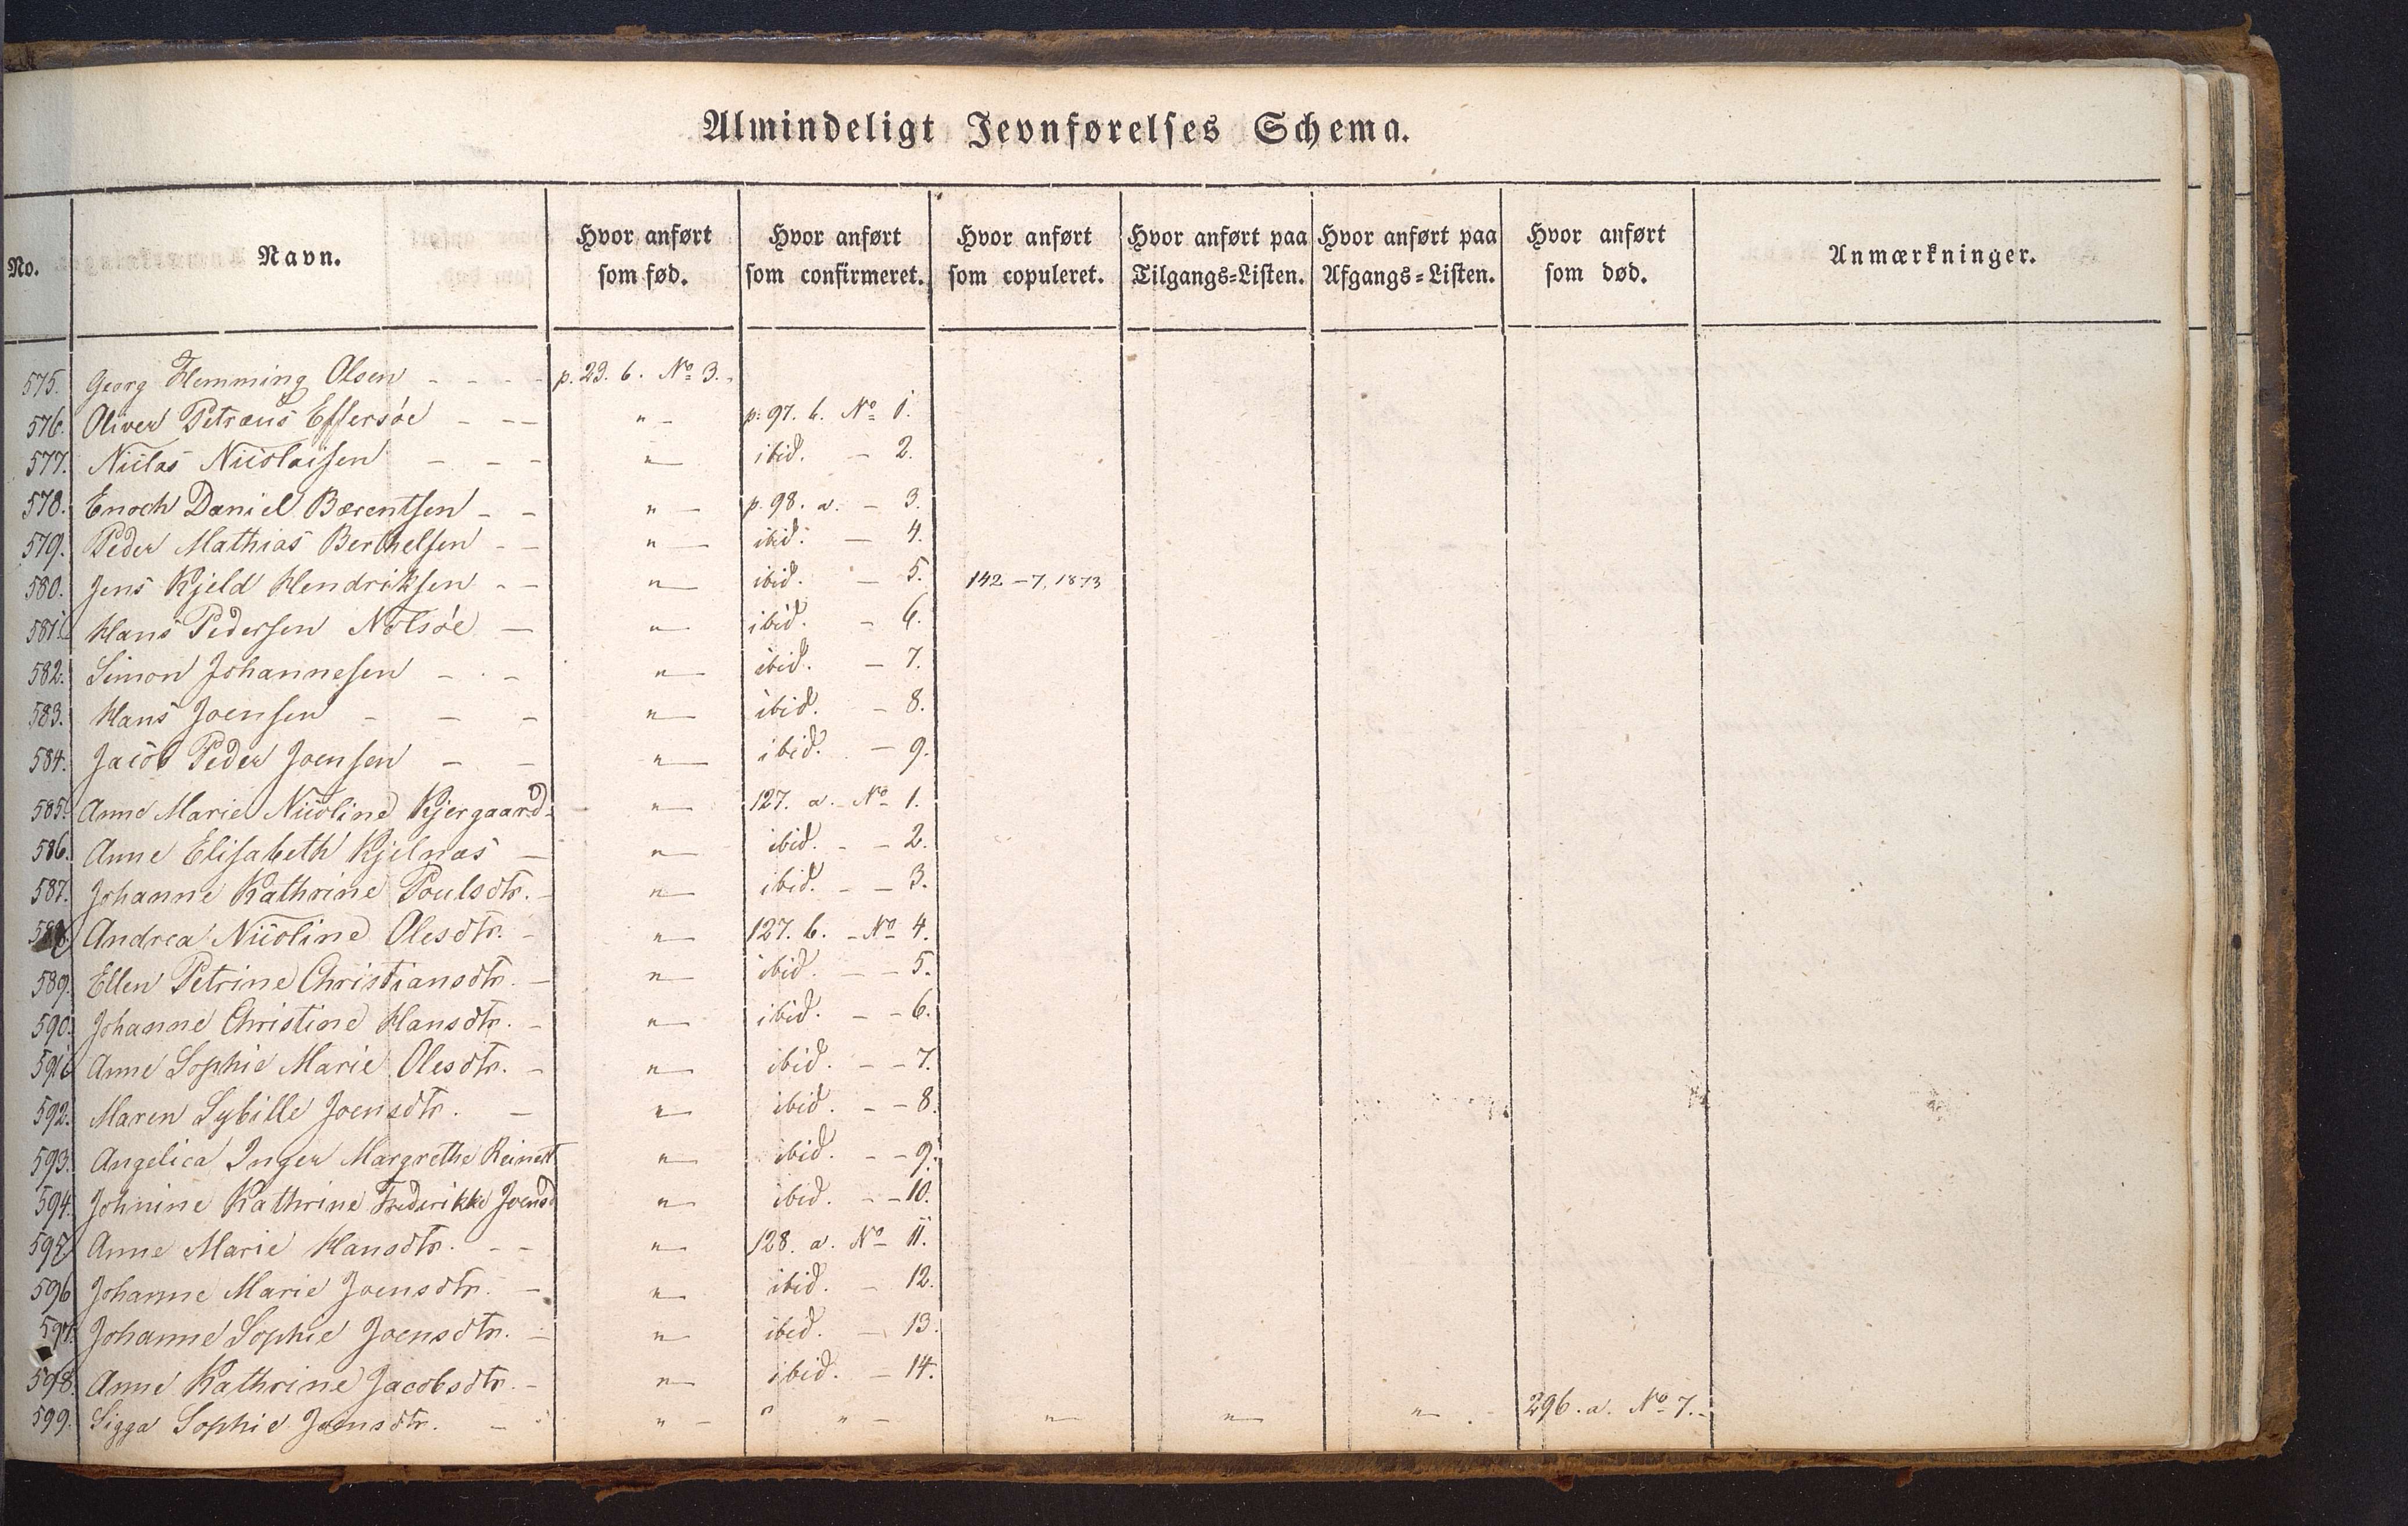 Almindeligt Jevnførelses Schema.
No. Navn. Hvor anført som fød. Hvor anført som confirmeret. Hvor anført som copuleret. Hvor anført paa Tilgangs=Listen. Hvor anført paa Afgangs=Listen. Hvor anført som død. Anmærkninger.
575. Georg Hemming Olsen - - - - p. 29. b. No 3.
576. Oliver Petræus Effersöe - - - " - p. 97. b. No 1.
577. Niclas Nicolaisen - - - " - ibid. - 2.
578. Enoch Daniel Bærentsen - - " - p. 98. a. - 3.
579. Peder Mathias Berthelsen - - " - ibid. - 4.
580. Jens Kjeld Hendriksen - - " - ibid. - 5. 142 - 7, 1873
581. Hans Pedersen Nolsöe - " - ibid. - 6.
582. Simon Johannesen - - - " - ibid. - 7.
583. Hans Joensen - - - " - ibid. - 8.
584. Jacob Peder Joensen - - " - ibid. - 9.
585. Anne Marie Nicoline Kjergaard - " - 127. a. - No 1.
586. Anne Elisabeth Kjelnæs - " - ibid. - - 2.
587. Johanne Kathrine Poulsdtr. - " - ibid. - - 3.
588. Andrea Nicoline Olesdtr. - " - 127. b. - No 4.
589. Ellen Petrine Christiansdtr. - " - ibid. - - 5.
590. Johanne Christine Hansdtr. - " - ibid. - - 6.
591. Anne Sophie Marie Olesdtr. - " - ibid. - - 7.
592. Maren Sybille Joensdtr. - " - ibid. - - 8.
593. Angelica Inger Margrethe Reinert " - ibid. - - 9.
594. Johnine Kathrine Frederikke Joensd " - ibid. - - 10.
595. Anne Marie Hansdtr. - - " - 128. a. No 11.
596 Johanne Marie Joensdtr. - " - ibid. - 12.
597. Johanne Sophie Joensdtr. - " - ibid. - 13.
598. Anne Kathrine Jacobsdtr. - " - ibid. - 14.
599. Sigga Sophie Joensdtr. - - " - " " - " - " - " - 296. a. No 7. -